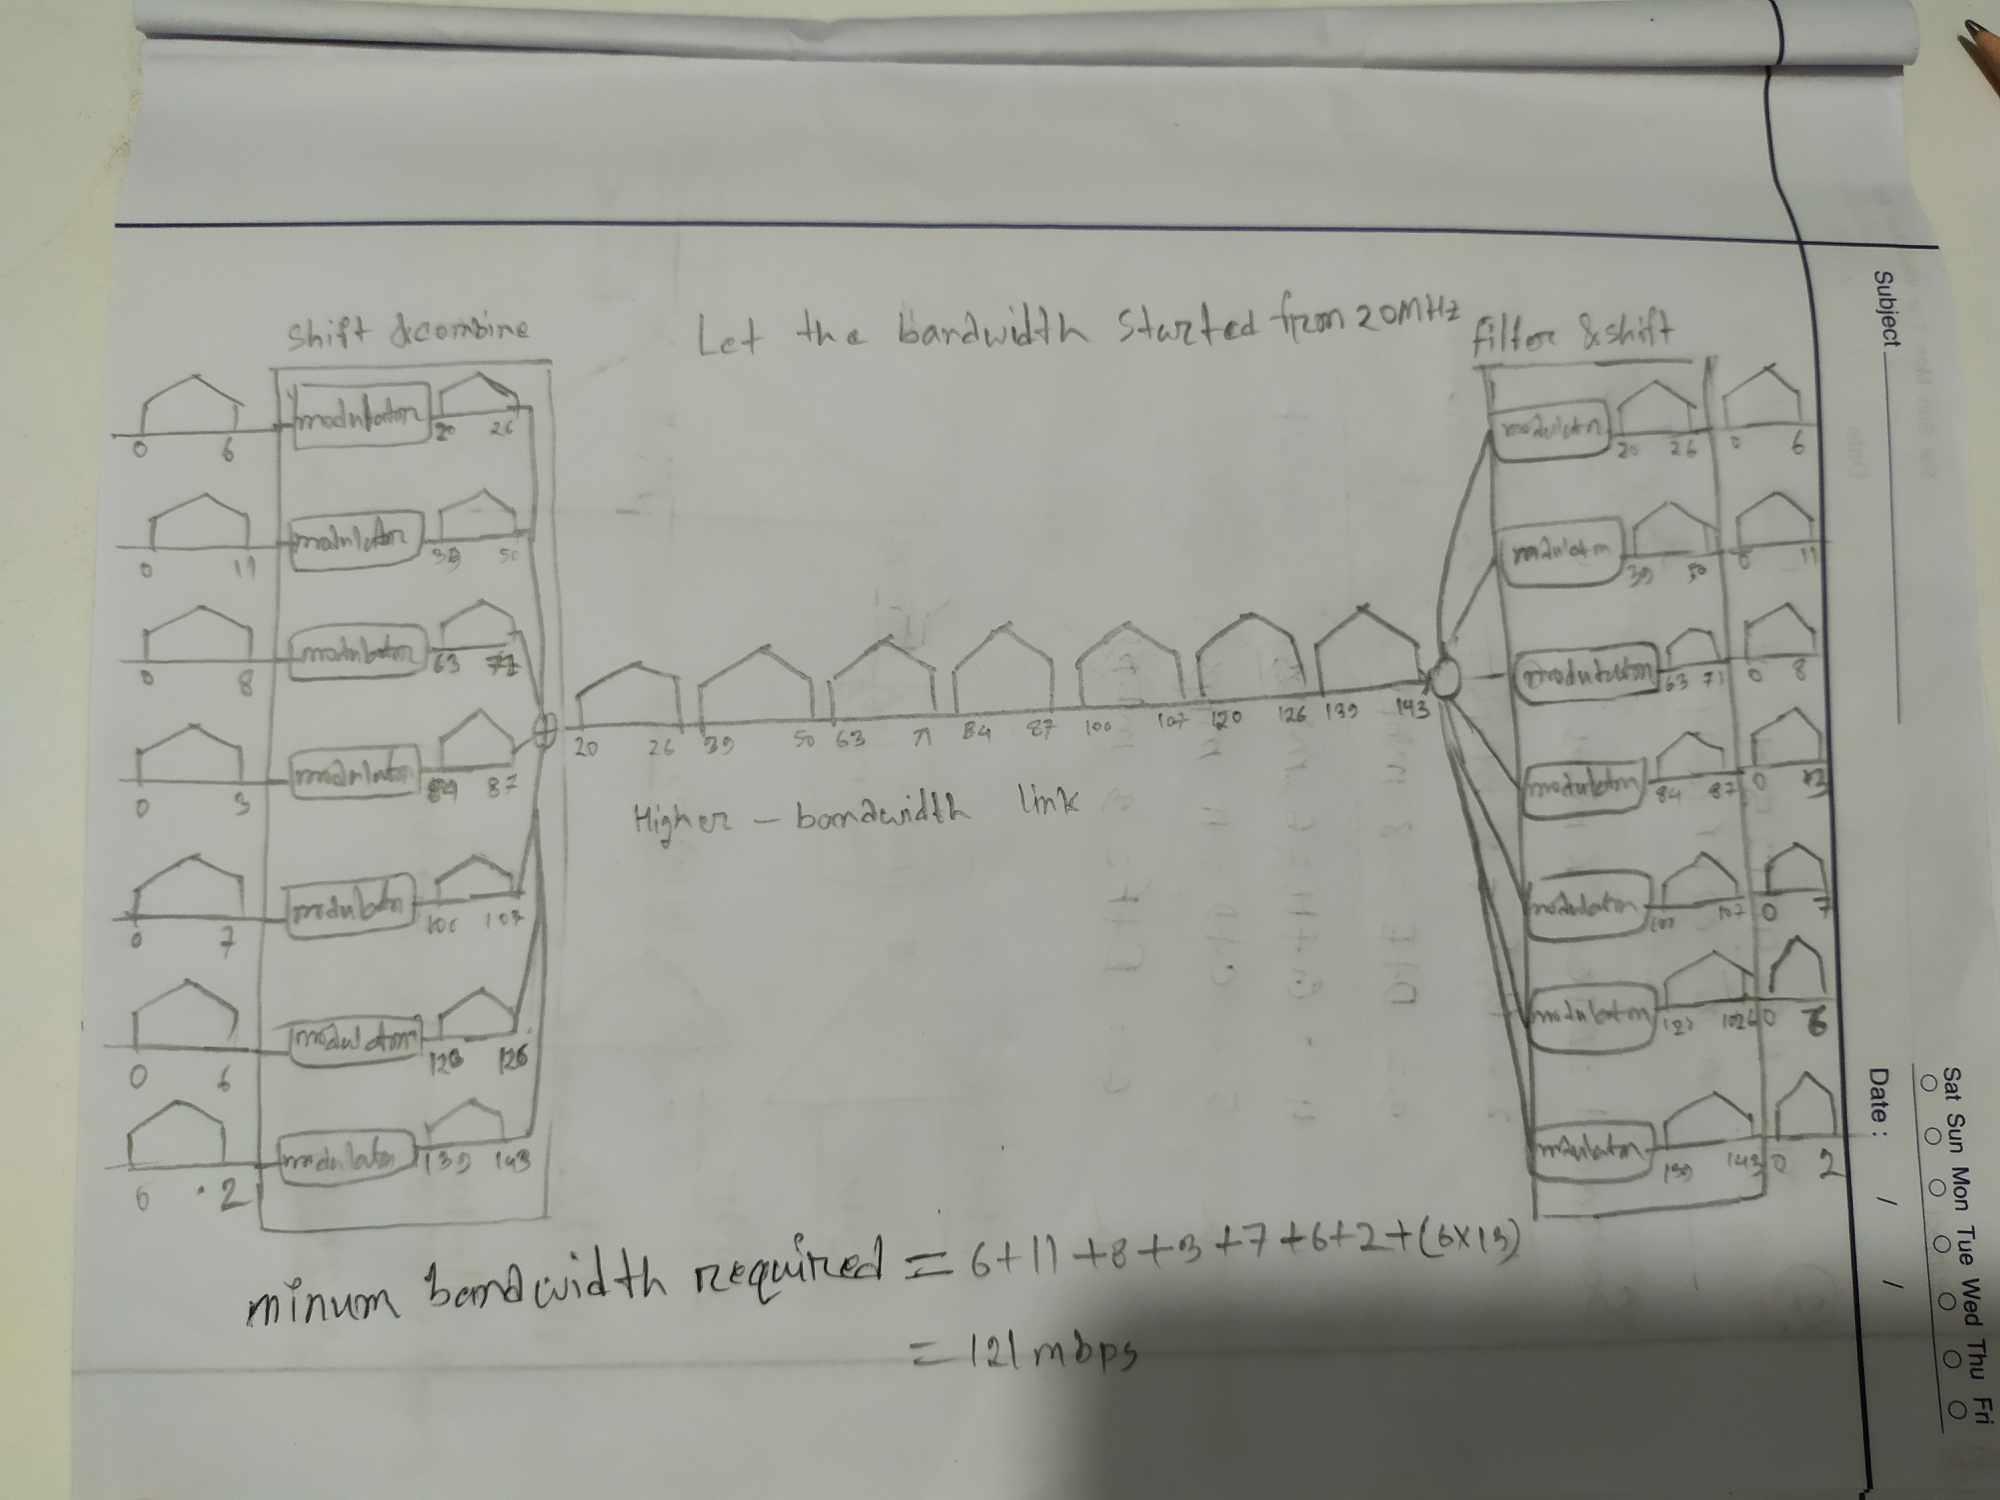 Subject
Date : / /
Sat Sun Mon Tue Wed Thu Fri
Let the bandwidth started from 20MHz
shift & combine
filter & shift
0 6 modulator 20 26
0 11 modulator 39 50
0 8 modulator 63 71
0 3 modulator 84 87
0 7 modulator 100 107
0 6 modulator 120 126
0 2 modulator 139 143
20 26 39 50 63 71 84 87 100 107 120 126 139 143
Higher - bandwidth link
modulator 20 26 0 6
modulator 39 50 0 11
modulator 63 71 0 8
modulator 84 87 0 3
modulator 107 0 7
modulator 0 6
modulator 139 143 0 2
minum bandwidth required = 6+11+8+3+7+6+2+(6×13)
= 121 mbps